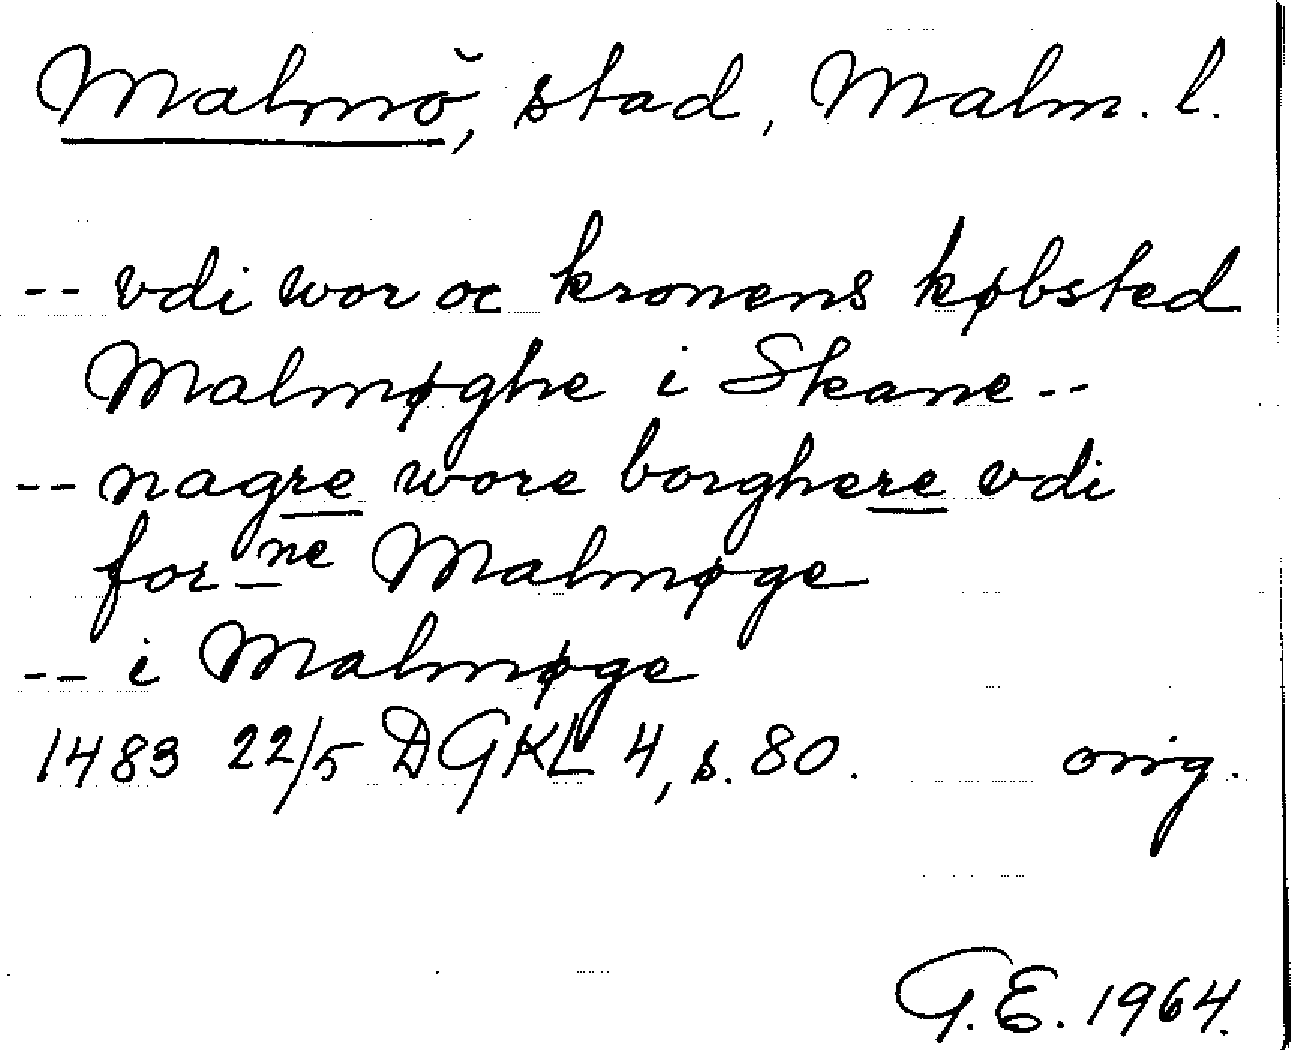 Malmö, stad, Malm. l.
-- vdi wor oc kronens købsted
Malmøghe i Skane --
-- nagre wore borghere vdi
for ne Malmøge
-- i Malmøge
1483 22/5 DGKL 4, s. 80. orig.
G.E. 1964.